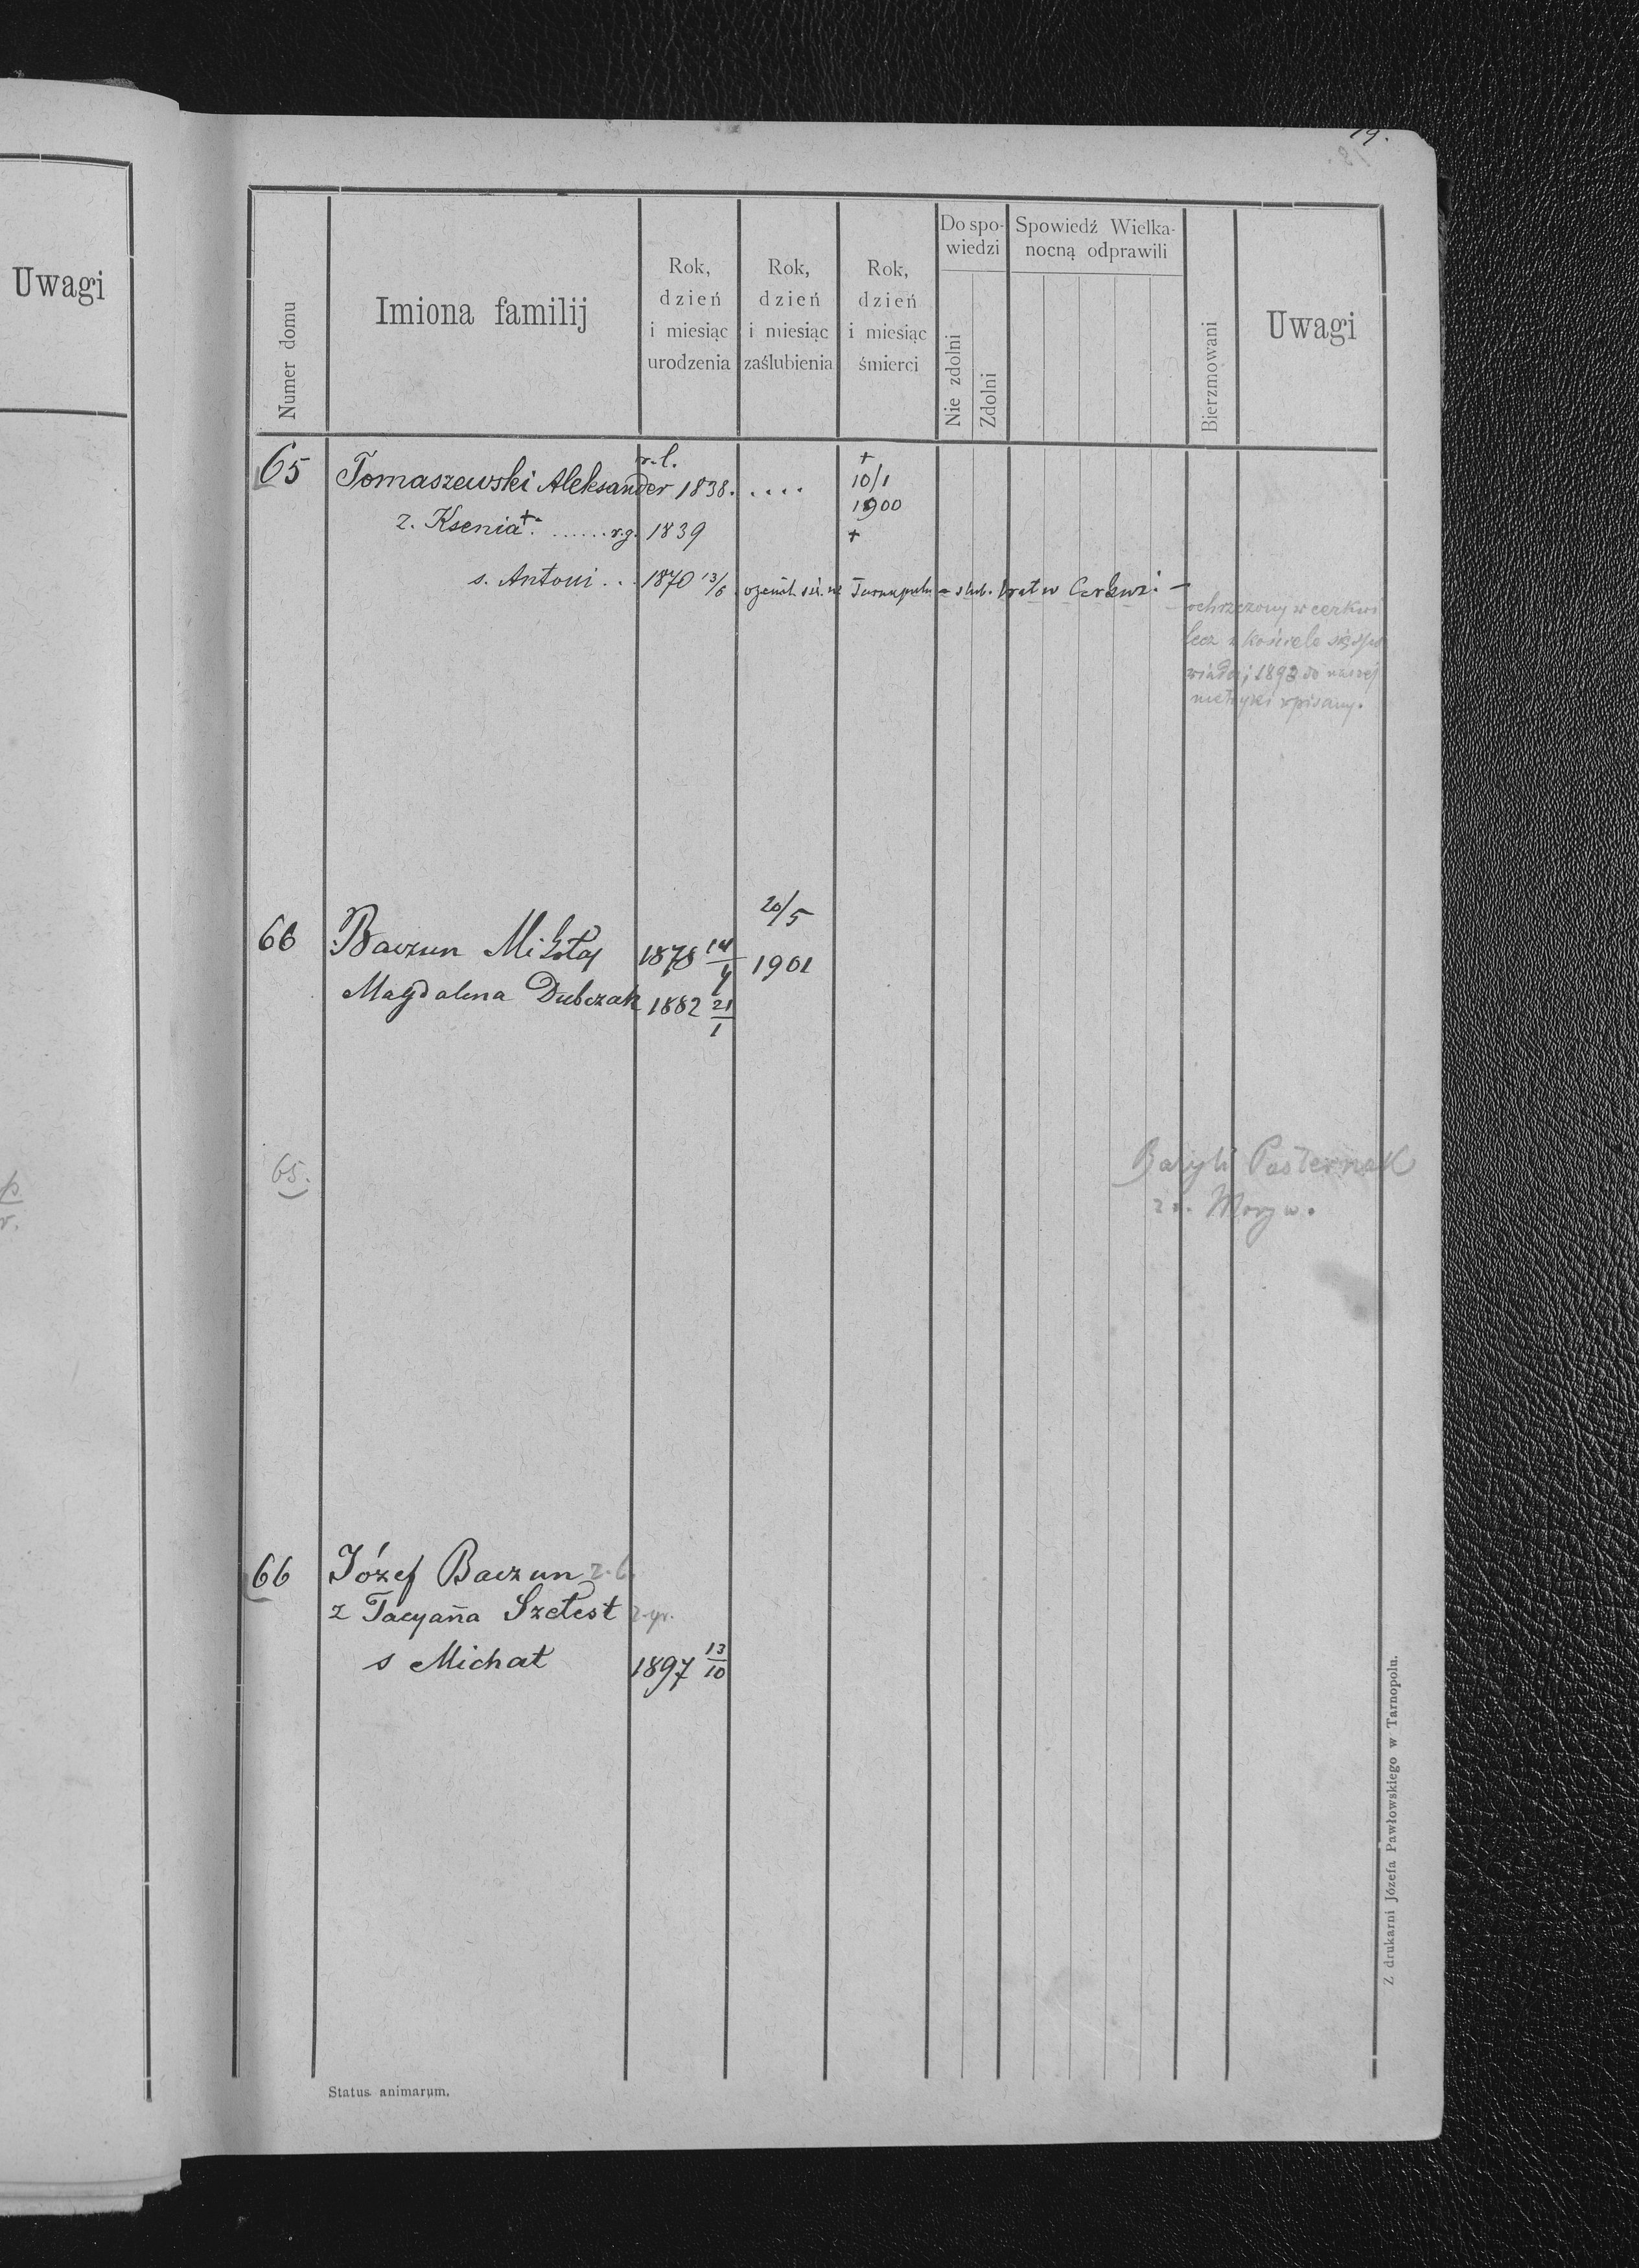 19.
18.
Uwagi
Numer domu
Imiona familij
Rok,
dzień
i miesiąc
urodzenia
Rok,
dzień
i miesiąc
zaślubienia
Rok,
dzień
i miesiąc
śmierci
Do spo-
wiedzi
Nie zdolni
Zdolni
Spowiedź Wielka-
nocną odprawili
Bierzmowani
Uwagi
65 Tomaszewski Aleksander r.l. 1838. .... + 10/1 1900
ż. Ksenia +. ...... r.g. 1839 +
s. Antoni ... 1870 13/6 ożenił się w Tarnopolu - ślub. brał w Cerkwi -
ochrzczony w cerkwi
lecz w kościele się spo
wiada i 1893 do naszej
metryki wpisany.
66 Baczun Mikołaj 1878 14/4 20/5 1901
Magdalena Dubczak 1882 21/1
65.
Bazyli Pasternak
66 Józef Baczun
ż Tacyanna Szełest
s Michał 1897 13/10
Status animarum.
Z drukarni Józefa Pawłowskiego w Tarnopolu.